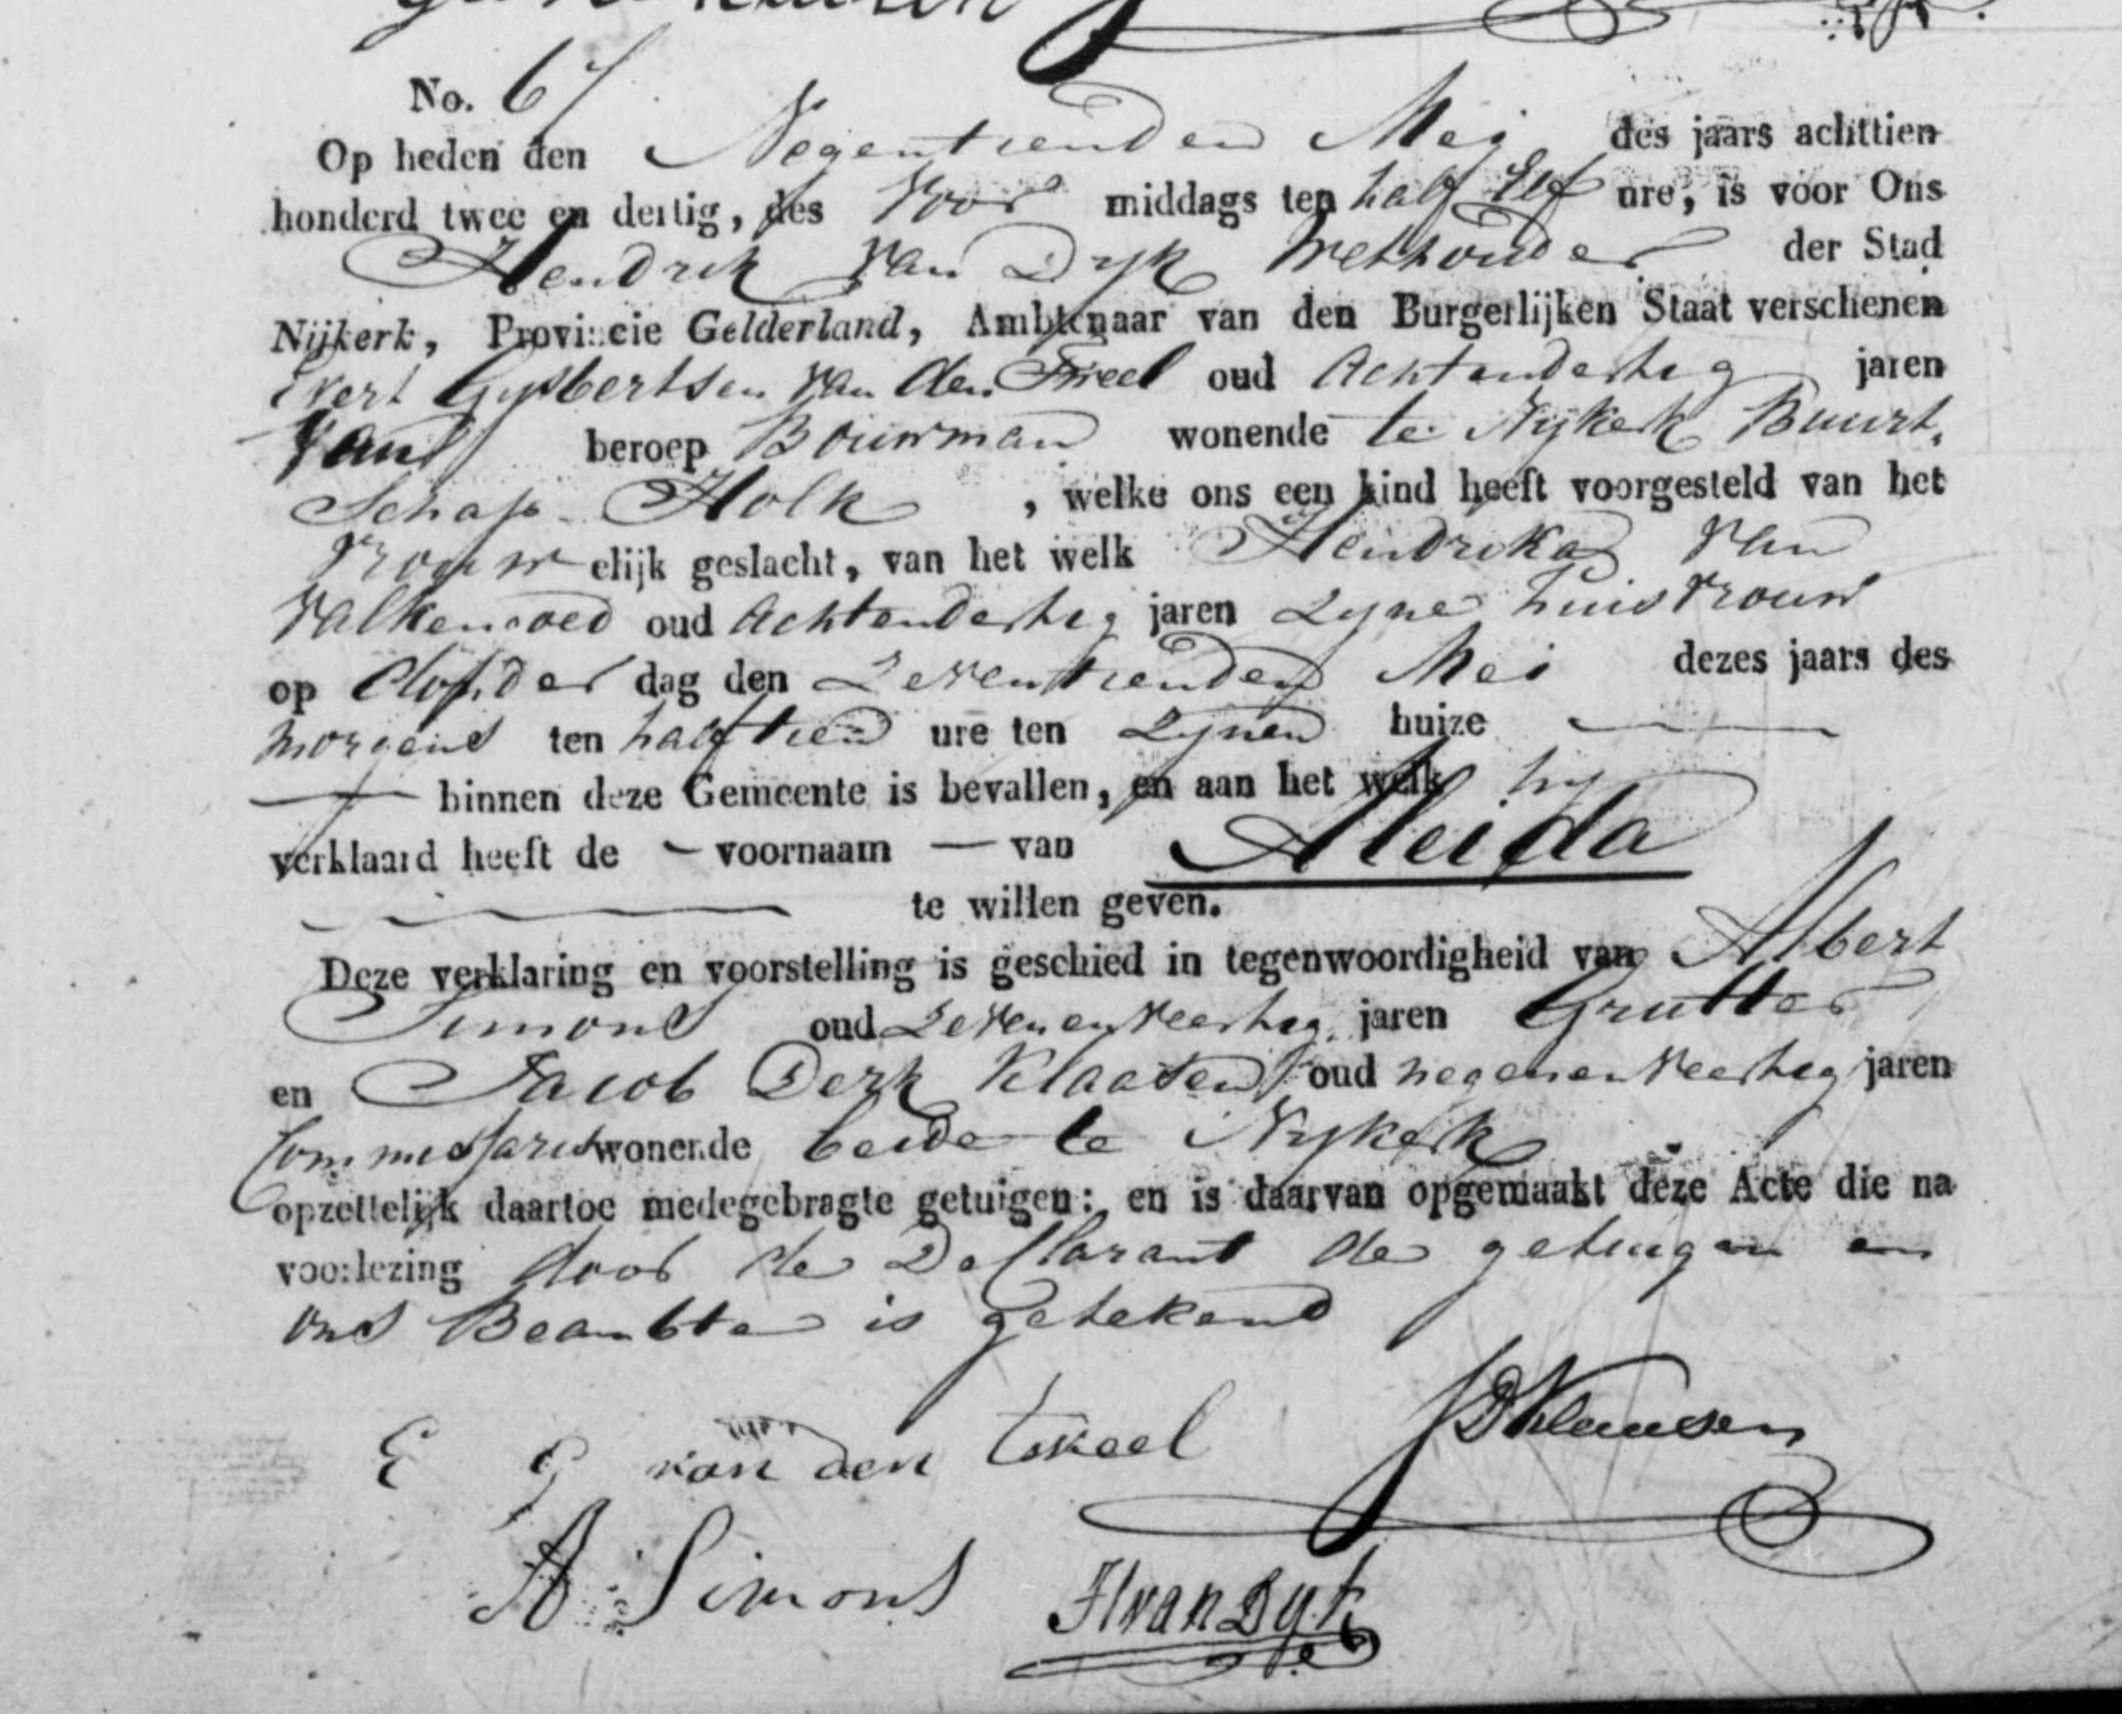 No. 67
Op heden den Negentienden Mei des jaars achttien
honderd twee en dertig, des Voor middags ten half Elf ure, is voor Ons
Hendrik Van Dyk Wethouder der Stad
Nijkerk, Provincie Gelderland, Ambtenaar van den Burgerlijken Staat verschenen
Evert Gysbertsen van den oud Achtendertig jaren
Van beroep Bouwman wonende te Nijkerk Buurt,
Schap Holk , welke ons een kind heeft voorgesteld van het
vrouw elijk geslacht, van het welk Hendrika Van
Valkengoed oud Achtendertig jaren Zyne huisvrouw
op donder dag den Zeventienden Mei dezes jaars des
morgens ten half tien ure ten Zynen huize
binnen deze Gemeente is bevallen, en aan het welk hy
verklaard heeft de voornaam van Aleida
te willen geven.
Deze verklaring en voorstelling is geschied in tegenwoordigheid van Albert
Simons oud Zevenenveertig jaren Grutter
en Jacob Derk Klaasen oud negenenveertig jaren
Commissaris wonende beide te Nykerk
opzettelijk daartoe medegebragte getuigen: en is daarvan opgemaakt deze Acte die na
voorlezing door de Declarant de getuigen en
ons Beambte is getekend
E G van den JDKlaasen
A Simons HvanDyk